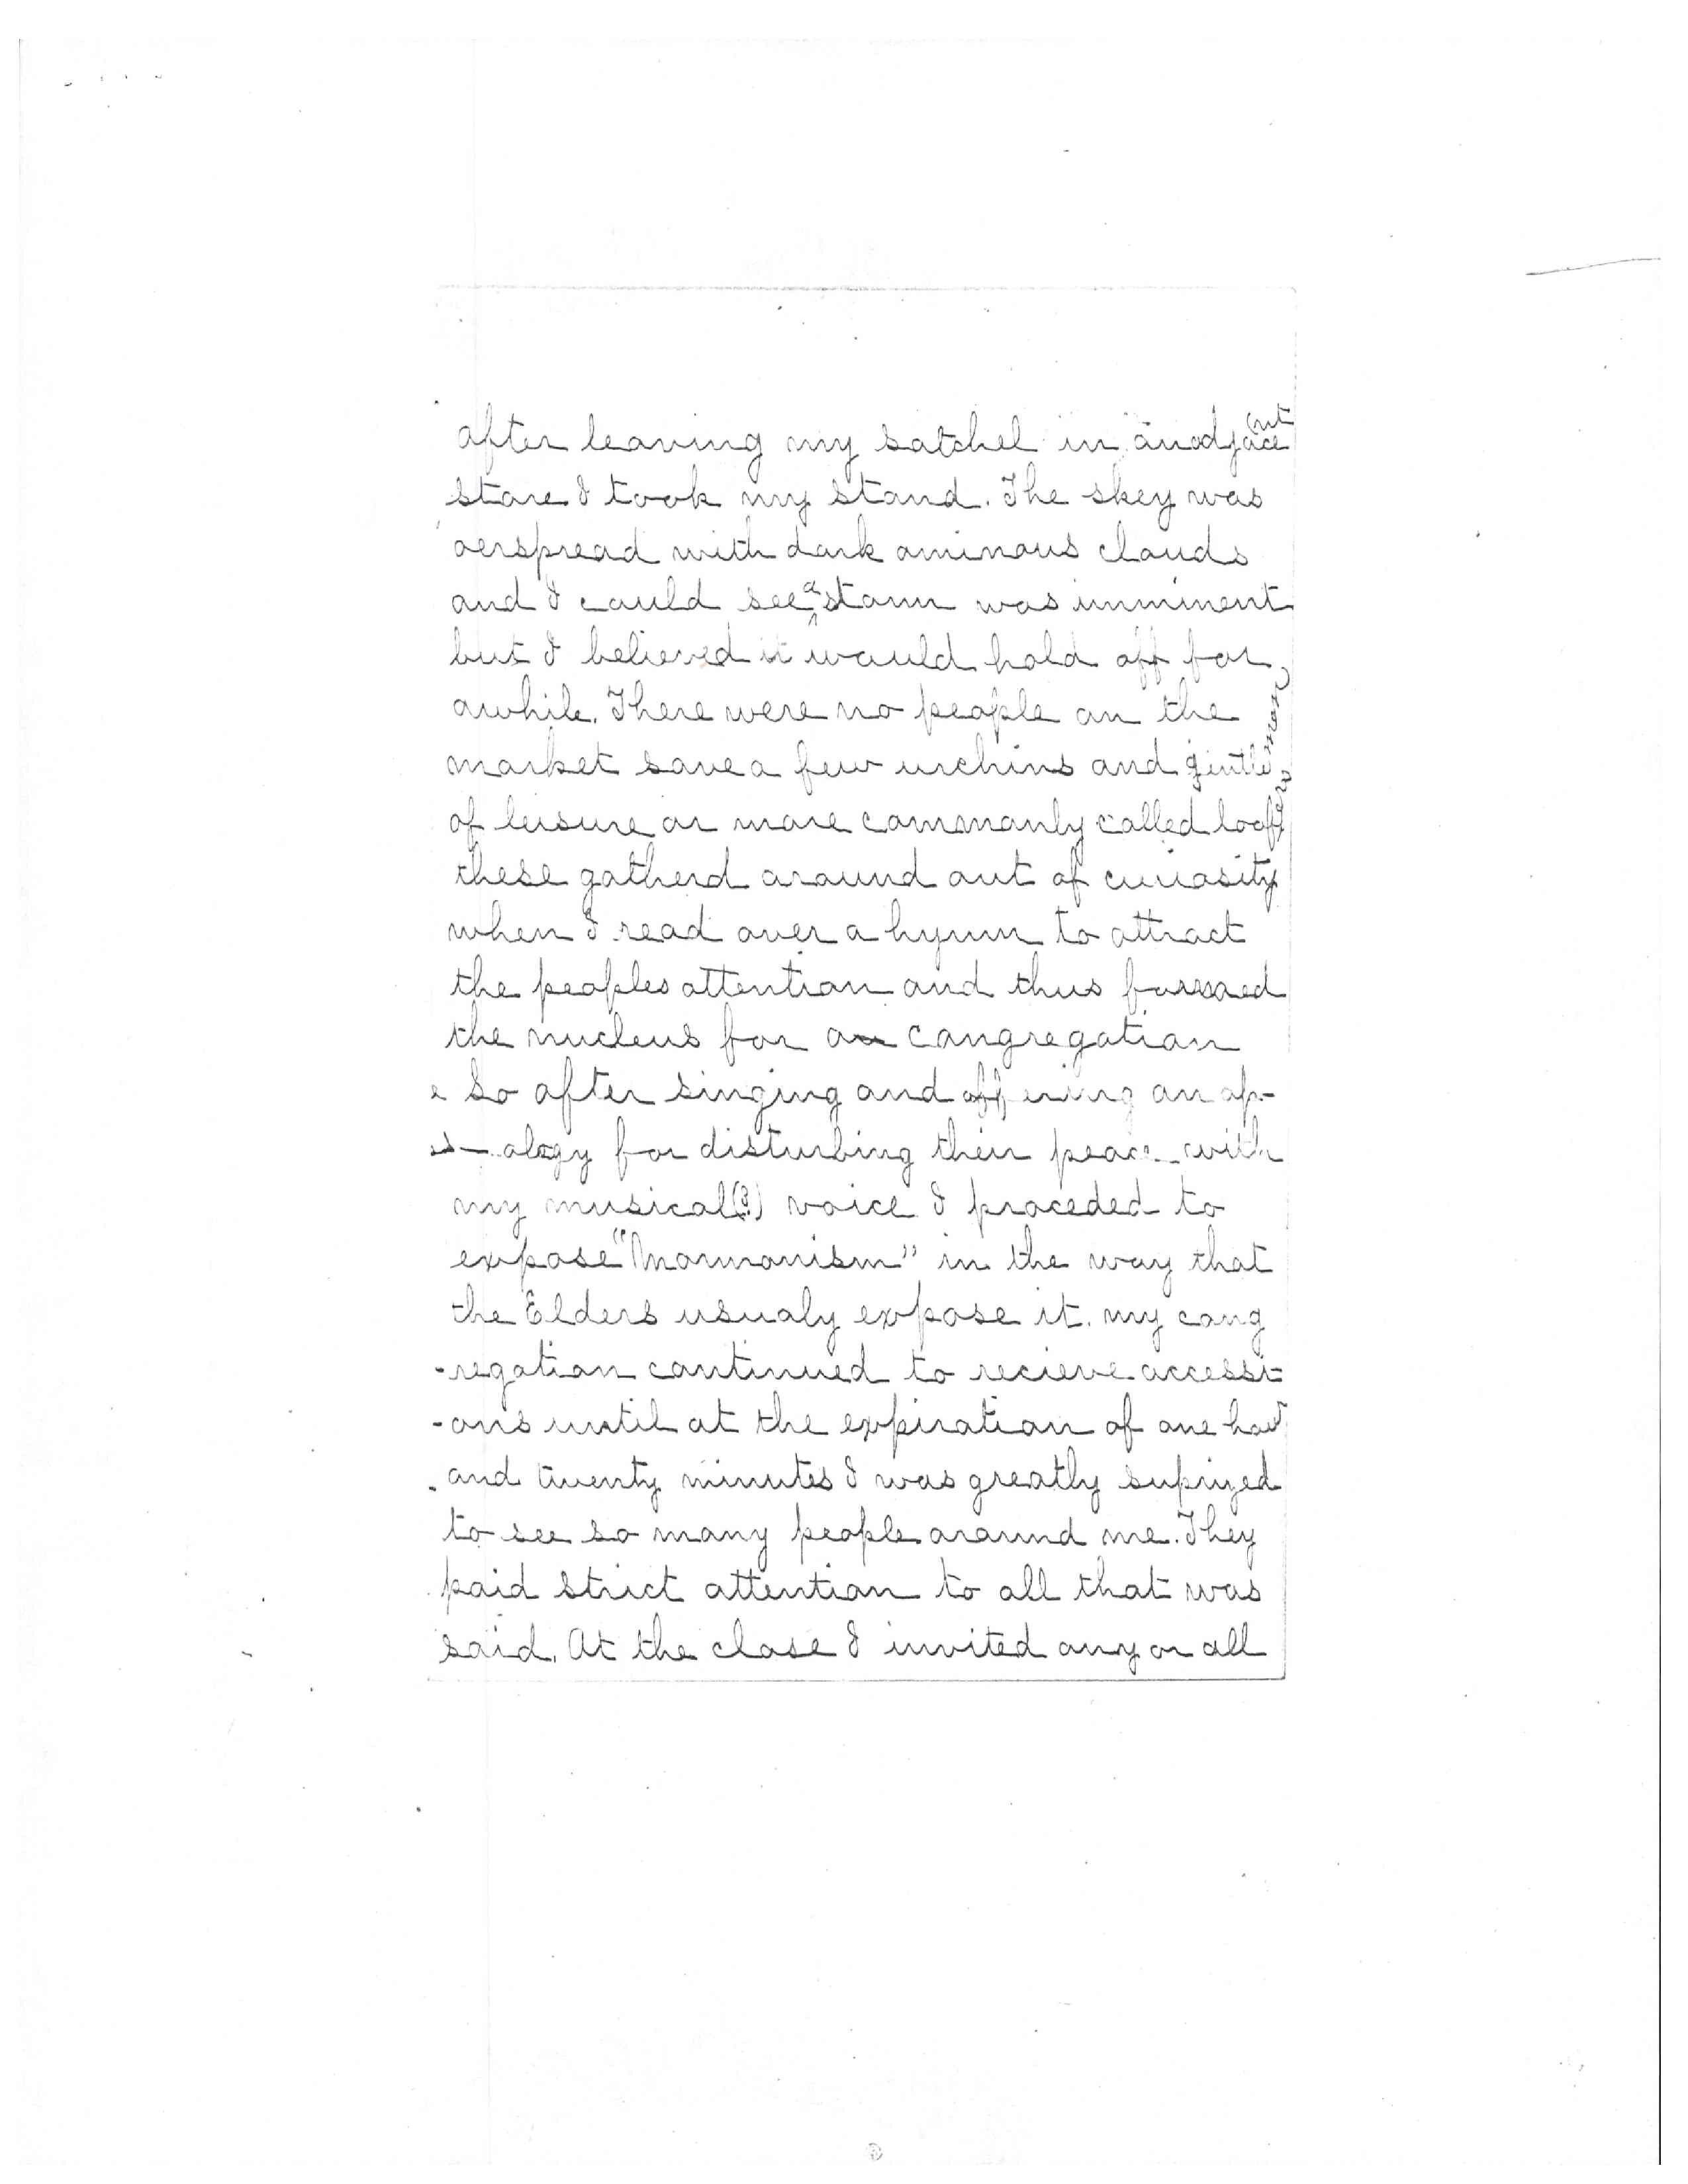 after leaving my satchel in anadjacent
store I took my stand. The skey was
oerspread with dark ominous clouds
and I could see a storm was imminent
but I believed it would hold off for
awhile. There were no people on the
market save a few urchins and gentlemen
of leisure or more commonly called loafers
these gatherd around out of curiosity
when I read over a hymn to attract
the peoples attention and thus formed
the nucleus for a congregation
So after singing and offering an ap-
-ology for disturbing their peace with
my musical(?) voice I proceded to
expose "Mormonism" in the way that
the Elders usualy expose it. my cong
-regation continued to recieve accessi-
-ons until at the expiration of one hour
and twenty minutes I was greatly suprized
to see so many people around me. They
paid strict attention to all that was
said. At the close I invited any or all